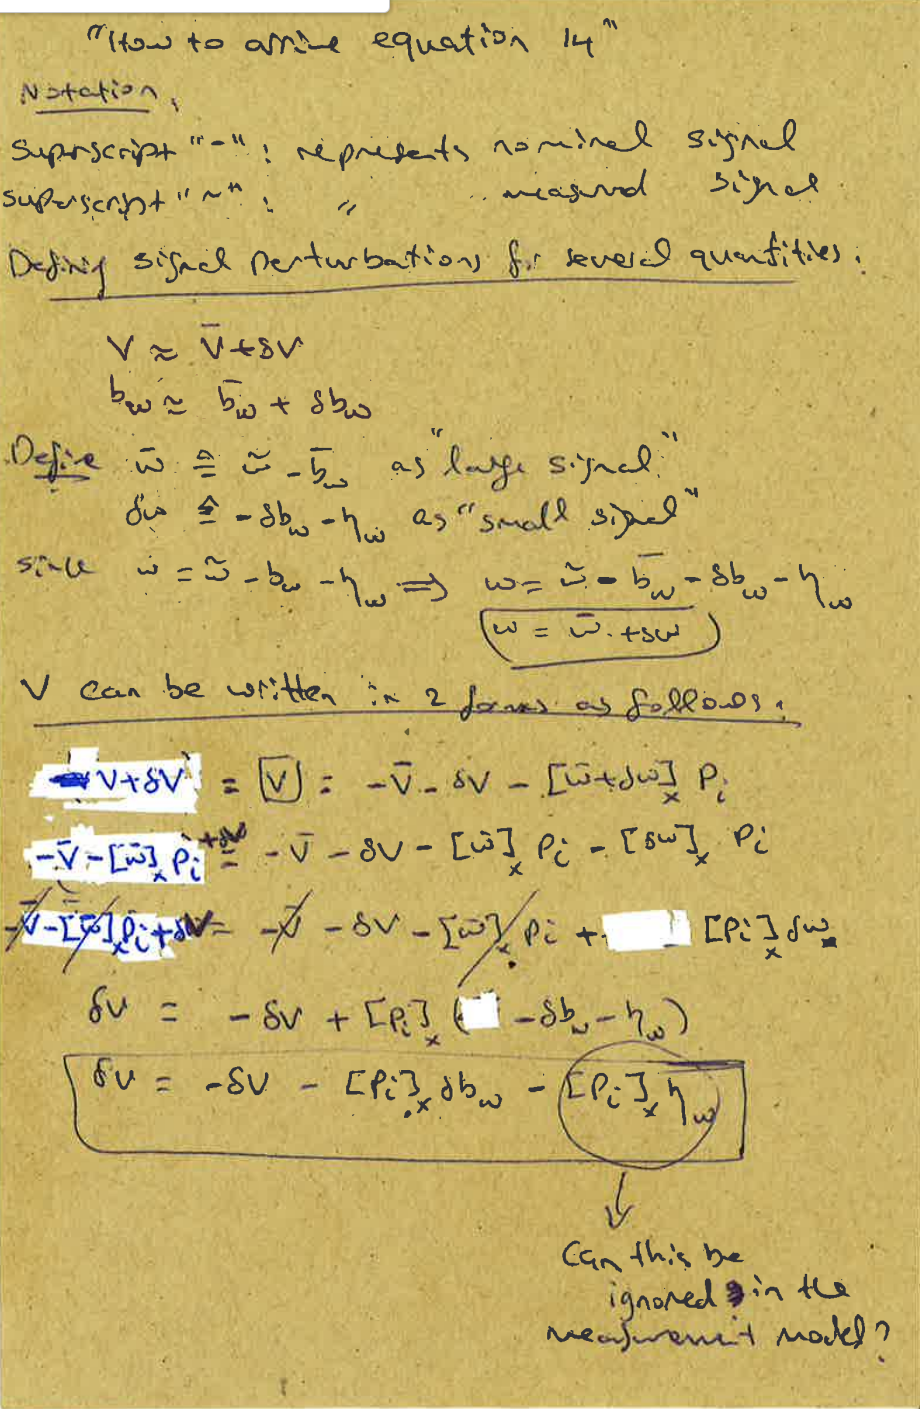 "How to arrive equation 14"
Notation,
Superscript "-": represents nominal signal
superscript "~": 〃 measured signal
Defining signal perturbations for several quantities:
V ≈ V̄+δV
b_ω ≈ b̄_ω + δb_ω
Define ω̄ ≙ ω̃ - b̄_ω as "large signal"
δω ≙ -δb_ω - η_ω as "small signal"
since ω = ω̃ - b_ω - η_ω ⟹ ω = ω̃ - b̄_ω - δb_ω - η_ω
ω = ω̄ + δω
V can be written in 2 forms as follows:
V+δV = V = -V̄ - δV - [ω̄+δω]ₓ Pᵢ
-V̄-[ω̄]ₓ Pᵢ +δV = -V̄ - δV - [ω̄]ₓ Pᵢ - [δω]ₓ Pᵢ
-V̄-[ω̄]ₓPᵢ+δV = -V̄ - δV - [ω̄]ₓ Pᵢ + [Pᵢ]ₓ δω
δv = -δV + [Pᵢ]ₓ ( -δb_ω - η_ω)
δv = -δV - [Pᵢ]ₓ δb_ω - [Pᵢ]ₓ η_ω
Can this be
ignored in the
measurement model?